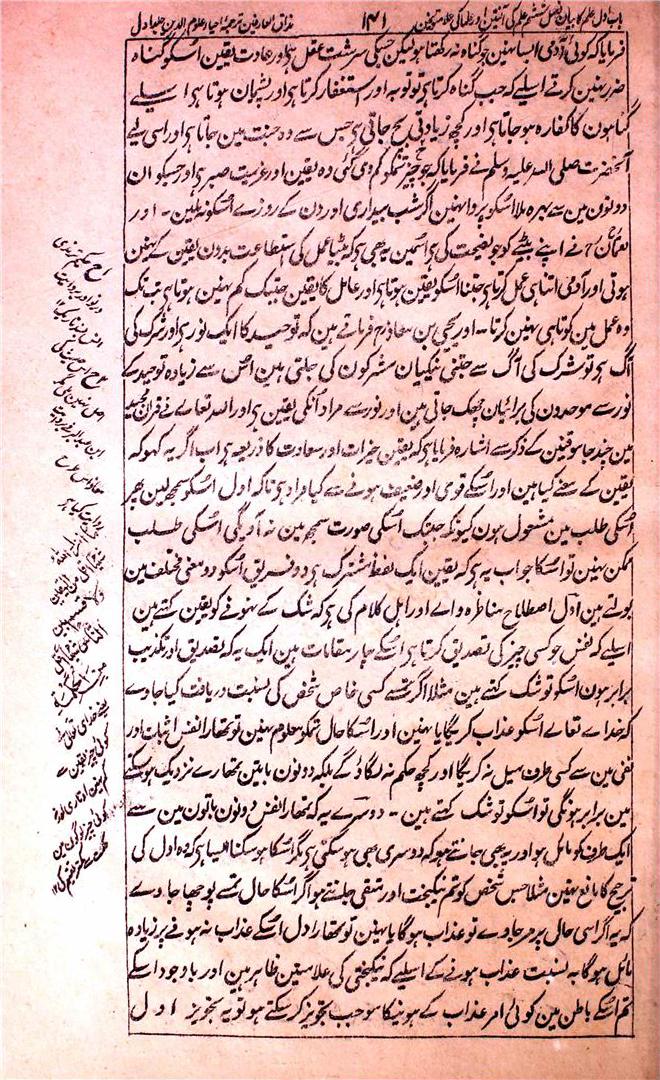 باب اول علم کا بیان فصل ششم علم کی آفتین اور علما کی علامتین
۱۴۱
مذاق العارفین ترجمۂ احیاء علوم الدین جلد اول
فرمایا کہ کوئی آدمی ایسا نہین جو گناہ نہ رکھتا ہو لیکن جسکی سرشت عقل ہو اور عادت یقین اسکو گناہ
ضرر نہین کرتے اسلیے کہ جب گناہ کرتا ہے تو توبہ اور استغفار کرتا ہے اور پشیمان ہوتا ہے اسلیے
گناہون کا کفارہ ہو جاتا ہے اور کچھ زیادتی بچ جاتی ہے جس سے وہ جنت مین جاتا ہے اور اسی لیے
آنحضرت صلی اللہ علیہ وسلم نے فرمایا کہ جو چیز تمکو کم دی گئی وہ یقین اور عزیمت صبر ہے اور جسکو ان
دونون مین سے بہرہ ملا اسکو پروا نہین اگر شب بیداری اور دن کے روزے اسکو نہ ملین ۔ اور
لقمان نے اپنے بیٹے کو جو نصیحت کی ہے اسمین یہ بھی ہے کہ بیٹا عمل کی استطاعت بدون یقین کے نہین
ہوتی اور آدمی اتنا ہی عمل کرتا ہے جتنا اسکو یقین ہوتا ہے اور عامل کا یقین جبتک کم نہین ہوتا ہے تب تک
وہ عمل مین کوتاہی نہین کرتا ۔ اور یحیی بن معاذ رح فرماتے ہین کہ توحید کا ایک نور ہے اور شرک کی
آگ ہے تو شرک کی آگ سے جتنی نیکیان مشرکون کی جلتی ہین اس سے زیادہ توحید کے
نور سے موحدون کی برائیان جل جاتی ہین اور نور سے مراد آنکی یقین ہے اور اللہ تعالے نے قرآن مجید
مین چند جا موقنین کے ذکر سے اشارہ فرمایا ہے کہ یقین خیرات اور سعادت کا ذریعہ ہے اب اگر یہ کہو کہ
یقین کے معنے کیا ہین اور اسکے قوی اور ضعیف ہونے سے کیا مراد ہے تاکہ اول اسکو سمجھ لین پھر
اسکی طلب مین مشغول ہون کیونکہ جبتک اسکی صورت سمجھ مین نہ آویگی اسکی طلب
ممکن نہین تو اسکا جواب یہ ہے کہ یقین ایک لفظ مشترک ہے دو فریق اسکو دو معنی مختلف مین
بولتے ہین اول اصطلاح مناظرہ والے اور اہل کلام کی ہے کہ شک کے نہونے کو یقین کہتے ہین
اسلیے کہ نفس جو کسی چیز کی تصدیق کرتا ہے اسکے چار مقامات ہین ایک یہ کہ تصدیق اور تکذیب
برابر ہون اسکو تو شک کہتے ہین مثلا اگر تمسے کسی خاص شخص کی نسبت دریافت کیا جاوے
کہ خدا تعالے اسکو عذاب کریگا یا نہین اور اسکا حال تمکو معلوم نہین تو تمھارا نفس اثبات اور
نفی مین سے کسی طرف میل نہ کریگا اور کچھ حکم نہ لگاویگا بلکہ دونون باتین تمھارے نزدیک ہو سکنے
مین برابر ہونگی تو اسکو شک کہتے ہین ۔ دوسرے یہ کہ تمھارا نفس دونون باتون مین سے
ایک طرف کو مائل ہو اور یہ بھی جانتے ہو کہ دوسری بھی ہو سکتی ہے مگر اسکا ہو سکنا ایسا ہے کہ وہ اول کی
ترجیح کا مانع نہین مثلا جس شخص کو تم نیکبخت اور متقی جانتے ہو اگر اسکا حال تمسے پوچھا جاوے
کہ یہ اگر اسی حال پر مر جاوے تو عذاب ہوگا یا نہین تو تمھارا دل اسکے عذاب نہ ہونے پر زیادہ
مائل ہوگا بہ نسبت عذاب ہونے کے اسلیے کہ نیکبختی کی علامتین ظاہر ہین اور باوجود اسکے
تم اسکے باطن مین کوئی امر عذاب کے ہونیکا موجب تجویز کر سکتے ہو تو یہ تجویز اول